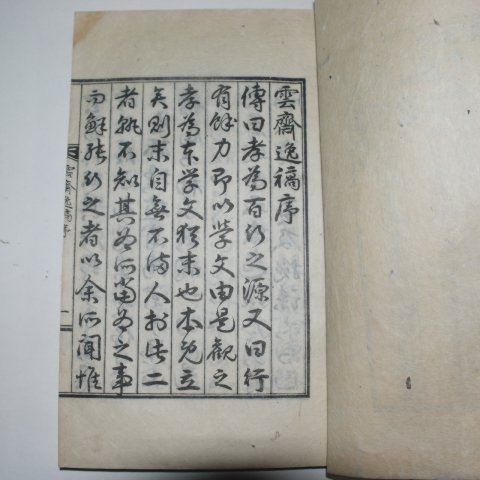 雲齋逸稿序
傳曰孝為百行之源又曰行
有餘力即以学文由是觀之
孝為本学文猶末也本既立
矣則末自無不該人於此二
者孰不知其為所當為之事
而鮮能行之者以余所聞惟
雲齋逸稿序
一